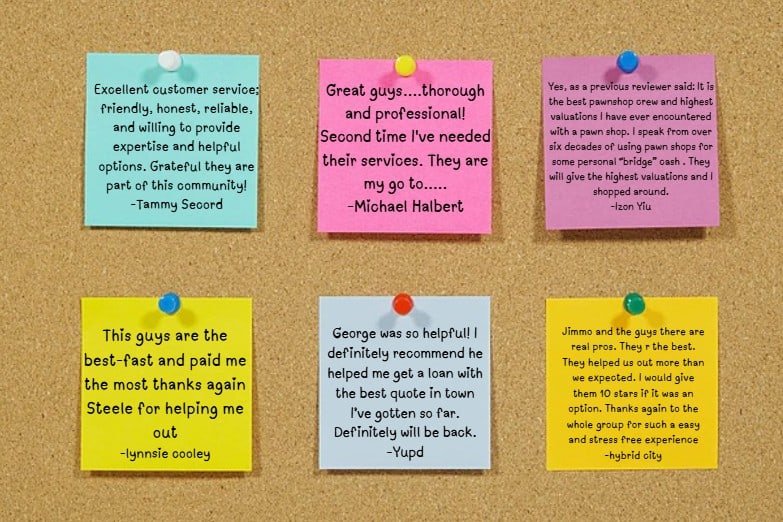 Excellent customer service;
friendly, honest, reliable,
and willing to provide
expertise and helpful
options. Grateful they are
part of this community!
-Tammy Secord
Great guys....thorough
and professional!
Second time I've needed
their services. They are
my go to.....
-Michael Halbert
Yes, as a previous reviewer said: It is
the best pawnshop crew and highest
valuations I have ever encountered
with a pawn shop. I speak from over
six decades of using pawn shops for
some personal "bridge" cash . They
will give the highest valuations and I
shopped around.
-Izon Yiu
This guys are the
best-fast and paid me
the most thanks again
Steele for helping me
out
-lynnsie cooley
George was so helpful! I
definitely recommend he
helped me get a loan with
the best quote in town
I've gotten so far.
Definitely will be back.
-Yupd
Jimmo and the guys there are
real pros. They r the best.
They helped us out more than
we expected. I would give
them 10 stars if it was an
option. Thanks again to the
whole group for such a easy
and stress free experience
-hybrid city